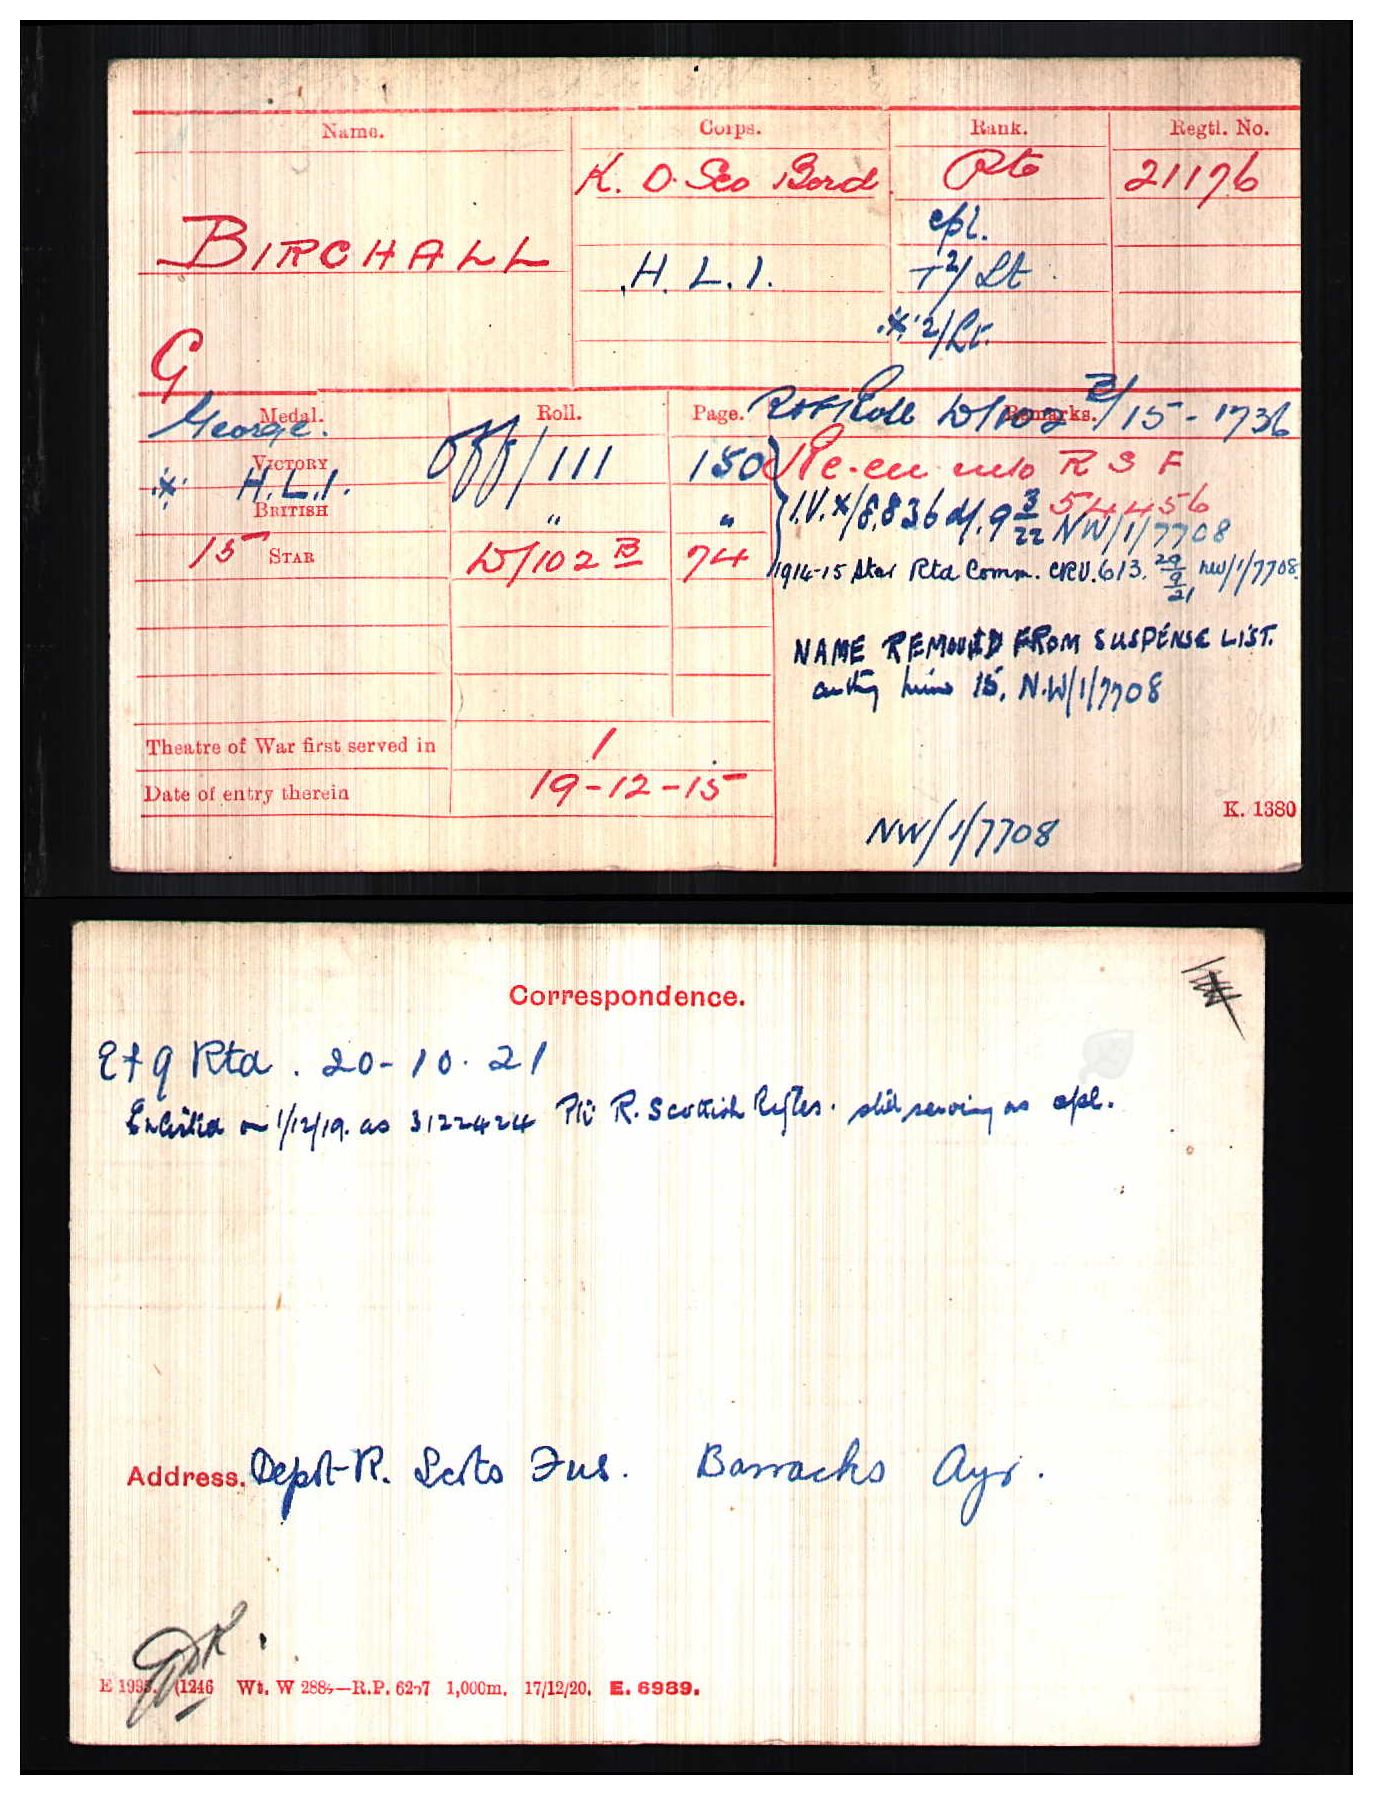 Name. Corps. Rank. Regtl. No.
K. O. Sco Bord. Pte 21176
cpl.
BIRCHALL
H. L. I. T2/Lt
* 2/Lt.
G
George. Medal. Roll. Page. Remarks.
Roll W/102 B/15-1736
VICTORY Off/111 150 Re-en into R S F
* H.L.I. 54456
BRITISH " " I.V.X/8836 d/. 9 3/22 NW/1/7708
15 STAR W/102 B 74 1914-15 Star Rtd Comm. CRV.613. 29/9/21 NW/1/7708.
NAME REMOVED FROM SUSPENSE LIST.
authy min 15, N.W/1/7708
Theatre of War first served in 1
Date of entry therein 19-12-15
K. 1380
NW/1/7708
Correspondence.
Ef9 Rtd. 20-10-21
Enlisted on 1/12/19. as 3122424 Pte R. Scottish Rifles. still serving as cpl.
Address. Depot R. Scots Fus. Barracks Ayr.
(1246 Wt. W 1,000m. 17/12/20. E. 6989.